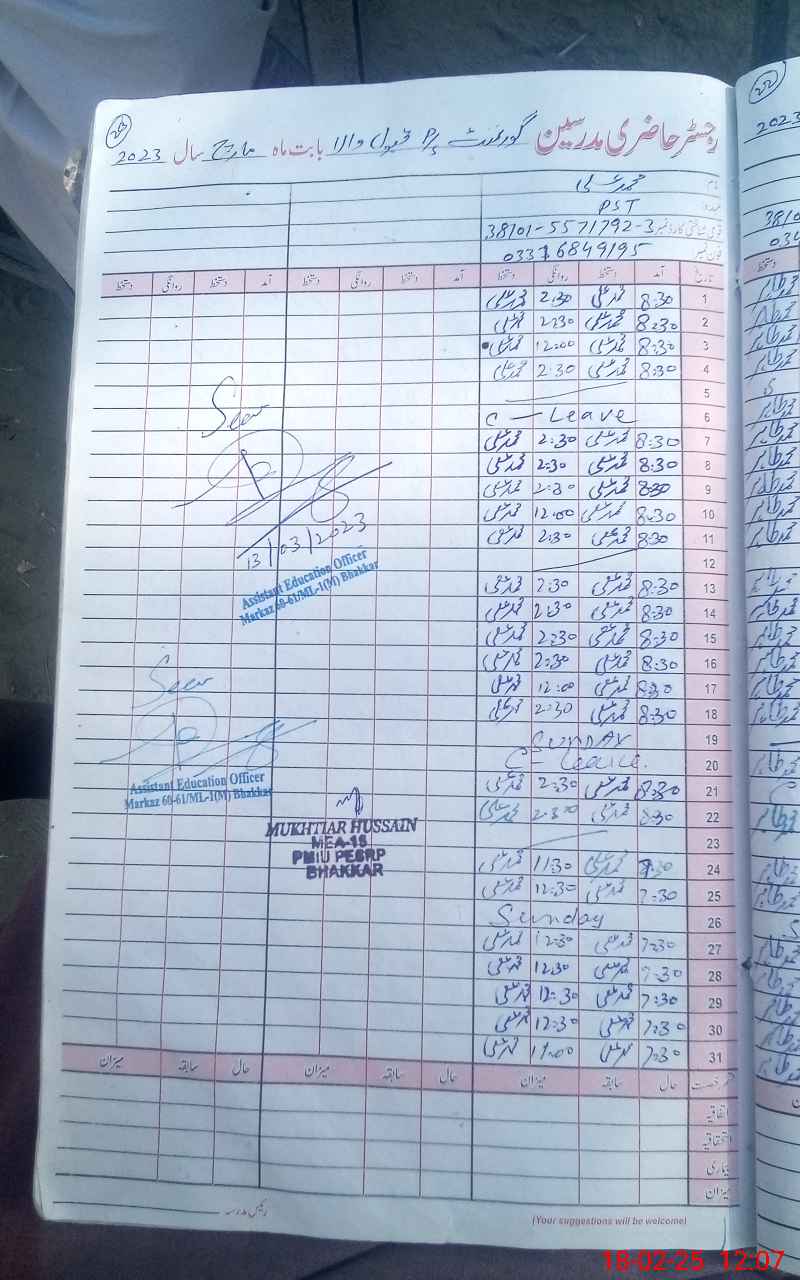 رجسٹر حاضری مدرسین گورنمنٹ پرا قبول والا بابت ماہ مارچ سال 2023
نام محمد علی
عہدہ PST
قومی شناختی کارڈ نمبر 38101-5571792-3
فون نمبر 03316849195
تاریخ آمد دستخط روانگی دستخط آمد دستخط روانگی دستخط آمد دستخط روانگی دستخط
1 8:30 محمد علی 2:30 محمد علی
2 8:30 محمد علی 2:30 محمد علی
3 8:30 محمد علی 12:00 محمد علی
4 8:30 محمد علی 2:30 محمد علی
5
6 C - Leave
7 8:30 محمد علی 2:30 محمد علی
8 8:30 محمد علی 2:30 محمد علی
9 8:30 محمد علی 2:30 محمد علی
10 8:30 محمد علی 12:00 محمد علی
11 8:30 محمد علی 2:30 محمد علی
12
13 8:30 محمد علی 2:30 محمد علی
14 8:30 محمد علی 2:30 محمد علی
15 8:30 محمد علی 2:30 محمد علی
16 8:30 محمد علی 2:30 محمد علی
17 8:30 محمد علی 12:00 محمد علی
18 8:30 محمد علی 2:30 محمد علی
19 SUNDAY
20 C - leave.
21 8:30 محمد علی 2:30 محمد علی
22 8:30 محمد علی 2:30 محمد علی
23
24 محمد علی 11:30 محمد علی
25 7:30 محمد علی 12:30 محمد علی
26 Sunday
27 7:30 محمد علی 12:30 محمد علی
28 7:30 محمد علی 12:30 محمد علی
29 7:30 محمد علی 12:30 محمد علی
30 7:30 محمد علی 12:30 محمد علی
31 7:30 محمد علی 11:00 محمد علی
Seen
13/03/2023
Assistant Education Officer
Markaz 60-61/ML-1(M) Bhakkar
Seen
Assistant Education Officer
Markaz 60-61/ML-1(M) Bhakkar
MUKHTIAR HUSSAIN
MEA-18
PMIU PESRP
BHAKKAR
قسم رخصت حال سابقہ میزان حال سابقہ میزان حال سابقہ میزان
اتفاقیہ
استحقاقیہ
بیماری
میزان
رئیس مدرسہ
(Your suggestions will be welcome)
2023
18-02-25 12:07